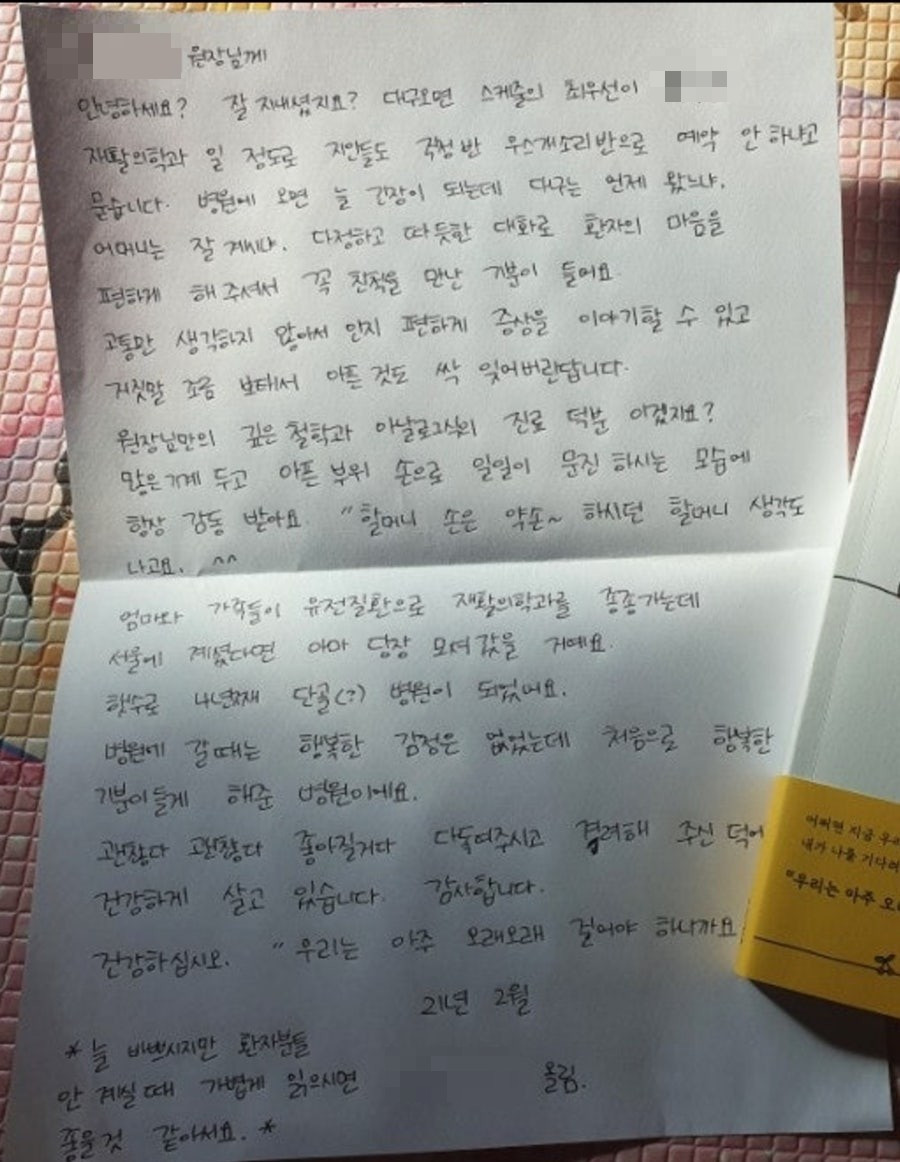 원장님께
안녕하세요? 잘 지내셨지요? 대구오면 스케줄의 최우선이
재활의학과 일 정도로 지인들도 걱정반 우스게소리반으로 예약 안 하냐고
묻습니다. 병원에 오면 늘 긴장이 되는데 대구는 언제 왔느냐,
어머니는 잘 계시냐. 다정하고 따듯한 대화로 환자의 마음을
편하게 해 주셔서 꼭 친척을 만난 기분이 들어요.
고통만 생각하지 않아서 인지 편하게 증상을 이야기할 수 있고
거짓말 조금 보태서 아픈 것도 싹 잊어버린답니다.
원장님만의 깊은 철학과 아날로그식의 진료 덕분 이겠지요?
많은 기계 두고 아픈 부위 손으로 일일이 문진 하시는 모습에
항상 감동 받아요. "할머니 손은 약손~ 하시던 할머니 생각도
나고요. ^^
엄마와 가족들이 유전질환으로 재활의학과를 종종가는데
서울에 계셨다면 아마 당장 모셔갔을 거예요.
햇수로 4년째 단골(?) 병원이 되었어요.
병원에 갈때는 행복한 감정은 없었는데 처음으로 행복한
기분이들게 해준 병원이에요.
괜찮다 괜찮다 좋아질거다 다독여주시고 격려해 주신 덕에
건강하게 살고 있습니다. 감사합니다.
건강하십시오. "우리는 아주 오래오래 걸어야 하니까요
21년 2월
올림.
*늘 바쁘시지만 환자분들
안 계실때 가볍게 읽으시면
좋을것 같아서요.*
어쩌면 지금 우리
내가 나를 기다려
"우리는 아주 오